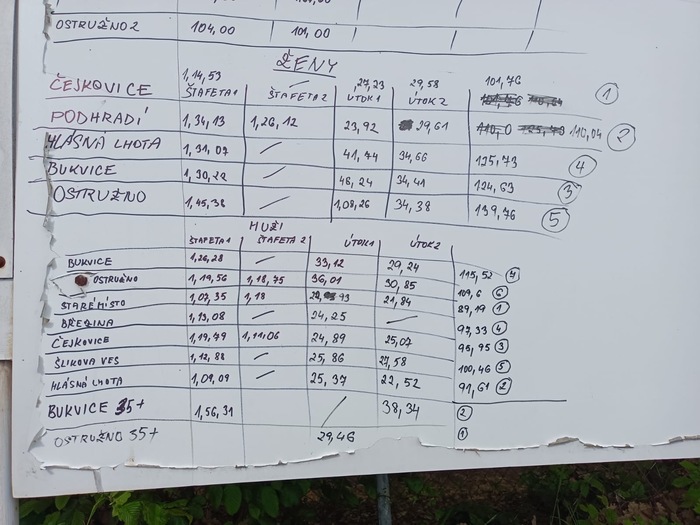 OSTRUŽNO 2 104,00 101,00
ŽENY
ČEJKOVICE 1,14,53 / 27,23 29,58 101,76 1
ŠTAFETA 1 ŠTAFETA 2 ÚTOK 1 ÚTOK 2
PODHRADÍ 1,34,13 1,26,12 23,92 29,61 110,04 2
HLÁSNÁ LHOTA 1,31,07 / 41,74 34,66 125,73 4
BUKVICE 1,30,22 / 48,24 34,41 124,63 3
OSTRUŽNO 1,45,38 / 1,08,26 34,38 139,76 5
MUŽI
ŠTAFETA 1 ŠTAFETA 2 ÚTOK 1 ÚTOK 2
BUKVICE 1,26,28 / 33,12 29,24 115,52 7
OSTRUŽNO 1,19,56 1,18,75 36,01 30,85 109,6 6
STARÉ MÍSTO 1,07,35 1,18 93 21,84 89,19 1
BŘEZINA 1,13,08 / 24,25 / 97,33 4
ČEJKOVICE 1,19,79 1,11,06 24,89 25,07 95,95 3
ŠLIKOVA VES 1,12,88 / 25,86 27,58 100,46 5
HLÁSNÁ LHOTA 1,09,09 / 25,37 22,52 91,61 2
BUKVICE 35+ 1,56,31 / 38,34 2
OSTRUŽNO 35+ 29,46 1